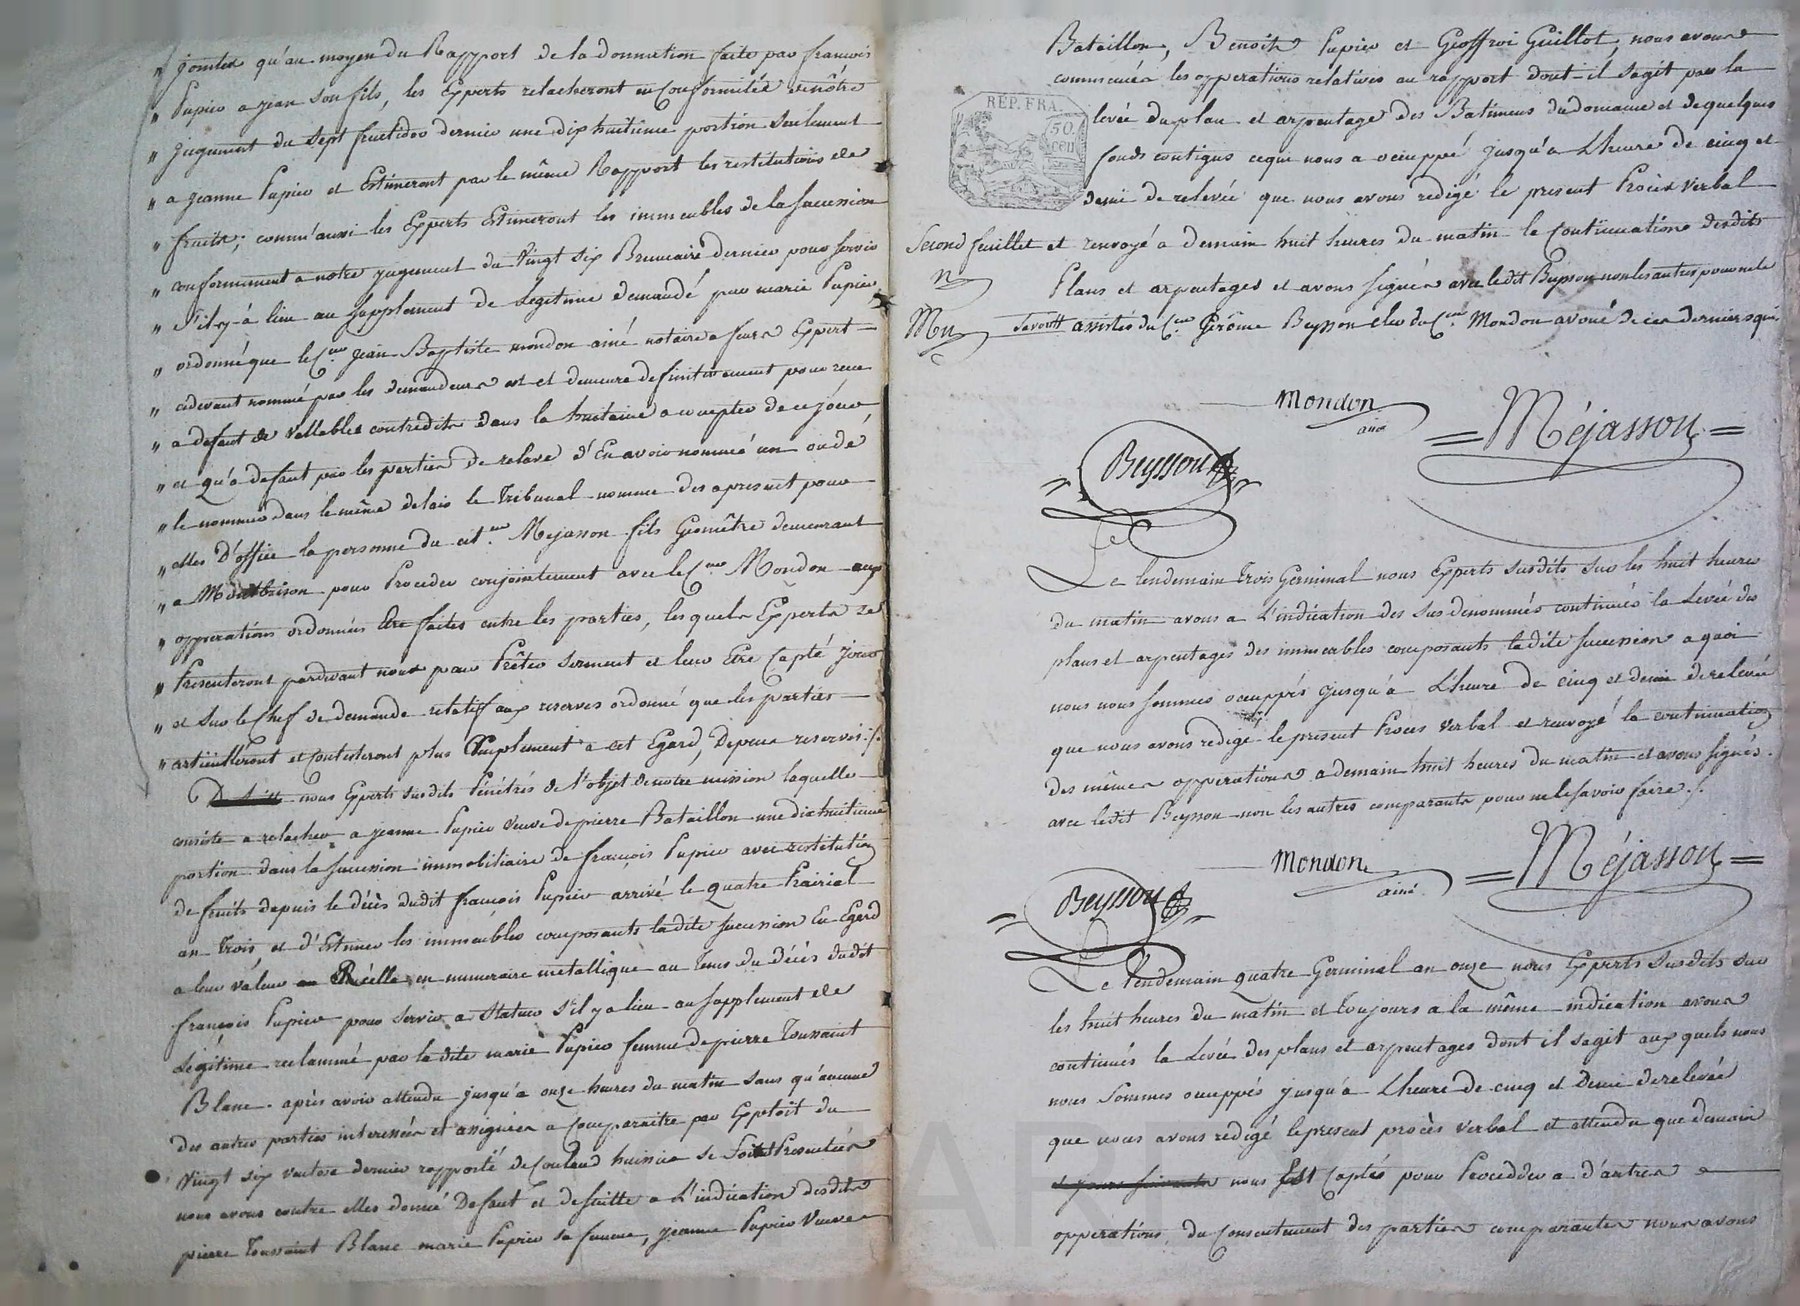 " joindre qu'au moyen du Rapport de la donnation faite par francois
" Pupier a jean son fils, les Experts relacheront en Conformité de nôtre
" jugement du sept fructidor dernier une dix huitieme portion seulement
" a jeanne Pupier et Estimeront par le même Rapport les restitutions de
" fruits; comm'aussi les Experts Estimeront les immeubles de la succession
" conformement a notre jugement du Vingt six Brumaire dernier pour servir
" s'il y à lieu au supplement de Legitime demandé par marie Pupier
" ordonné que le C.en jean Baptiste mondon ainé notaire a feurs Expert
" cidevant nommé par les demandeurs est et demeure definitivement pour eux
" a defaut de vallables contredits dans la huitaine a compter de ce jour
" et qu'a defaut par les parties de relave d'En avoir nommé un ou de
" le nommer dans le même delais le Tribunal nomme des apresent pour
" elles D'office la personne du cit.en Mejasson fils Geomêtre demeurant
" a Montbrison pour Proceder conjointement avec le C.en Mondon aux
" opperations ordonnées être faites entre les parties, lesquels Experts se
" Presenteront pardevant nous pour Prêter serment et leur Etre Capté jour
" et sur le Chef de demande relatif aux reserves ordonné que les parties
" articulleront et Contesteront plus Emplement a cet Egard, Depens reservés ./.
nous Experts susdits Pénétrés de l'objet de notre mission laquelle
consiste a relacher a jeanne Pupier veuve de pierre Bataillon une dixhuitieme
portion dans la succession immobiliaire de françois Pupier avec restitution
de fruits depuis le décès dudit françois Pupier arrivé le quatre Prairial
an Trois, et d'Estimer les immeubles composants ladite succession Eu Egard
a leur valeur Réelle en numeraire metallique au Tems du décès dudit
françois Pupier pour servir a Statuer s'il y a lieu au supplement de
Légitime reclammé par la dite marie Pupier femme de pierre Toussaint
Blanc. après avoir attendu jusqu'a onze heures du matin sans qu'aucune
des autres parties interessées et assignées a Comparaitre par Exploit du
Vingt six ventose dernier rapporté de Couland huissier se soit Presentées
nous avons contre elles donné Defaut et de suitte a L'indication desdits
pierre Toussaint Blanc marie Pupier sa femme, jeanne Pupier Veuve
REP. FRA.
50
cen
Bataillon, Benoit Pupier et Geoffroi Guillot, nous avons
commencé les opperations rélatives au rapport dont il s'agit par la
levée du plan et arpentage des Batimens du domaine et de quelques
fonds contigus ce qui nous a occuppé jusqu'a L'heure de cinq et
demi de relevée que nous avons redigé le present Procès verbal
Second feuillet et renvoyé a demain huit heures du matin la Continuation desdits
Plans et arpentages et avons signés avec ledit Beysson non les autres pour ne le
savoir assistés du C.en Gérôme Beysson
Mondon
ainé
Méjasson
Beysson
Le lendemain Trois Germinal nous Experts susdits sur les huit heures
du matin avons a L'indication des susdenommés continués la Levée des
plans et arpentages des immeubles composants ladite succession a quoi
nous nous sommes occuppés jusqu'à L'heure de cinq et demie de relevée
que nous avons redigé le present Proces verbal et renvoyé la continuation
des mêmes opperations a demain huit heures du matin et avons signés
avec ledit Beysson non les autres comparants pour ne le savoir faire ./.
Mondon
ainé
Méjasson
Beysson
Le lendemain quatre Germinal an onze nous Experts susdits sur
les huit heures du matin et toujours a la même indication avons
continués la Levée des plans et arpentages dont il s'agit aux quels nous
nous sommes occuppés jusqu'a L'heure de cinq et Demie de relevée
que nous avons redigé le present procès verbal et attendu que demain
nous Est Captés pour Procedder a d'autres
opperations, du Consentement des parties comparantes nous avons